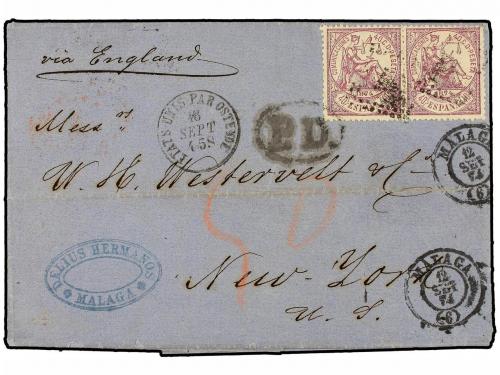 via England
Mess rs
W. H. Westervelt & Co
New-York
U. S.
ETATS UNIS PAR OSTENDE
16
SEPT
P.D.
MALAGA
12
SEP
74
(6)
MALAGA
12
SEP
74
(6)
DELIUS HERMANOS
MALAGA
ESPAÑA
ESPAÑA